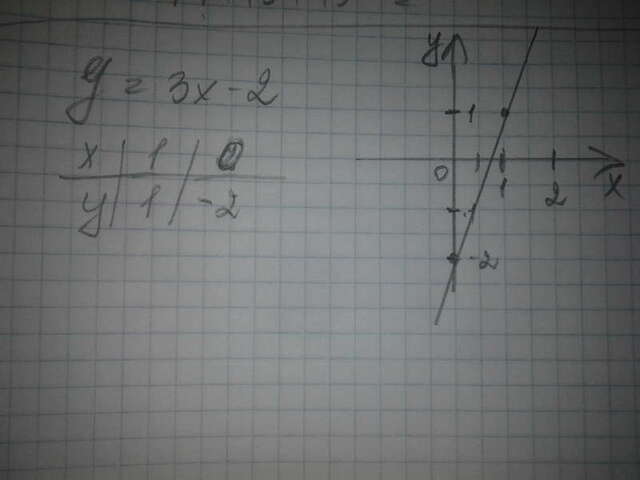 y = 3x - 2
x | 1 | 0
y | 1 | -2
y
1
0
1
2
x
-1
-2